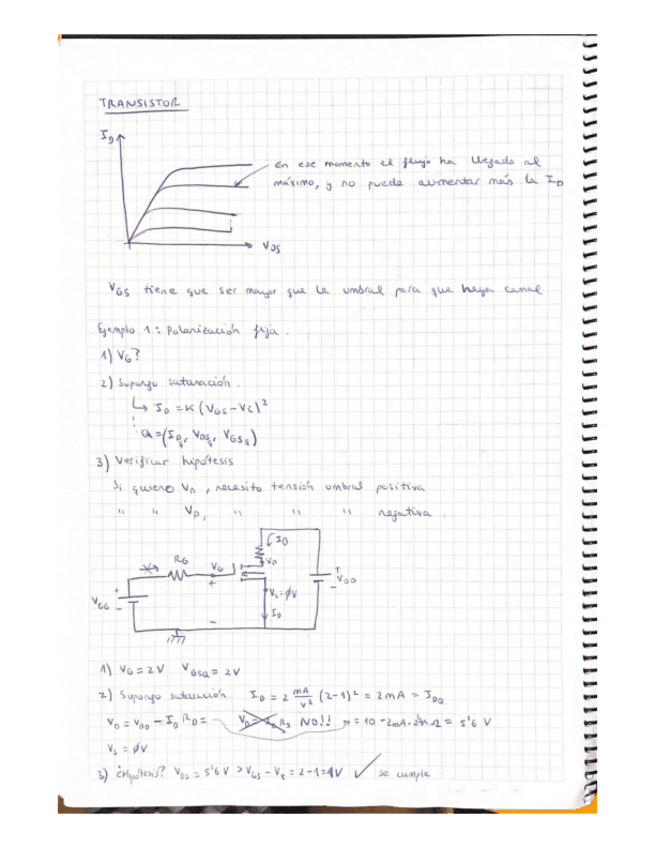 TRANSISTOR
ID
en ese momento el flujo ha llegado al
máximo, y no puede aumentar más la ID
VDS
VGS tiene que ser mayor que la umbral para que haya canal
Ejemplo 1: Polarización fija.
1) VG?
2) Supongo saturación.
↳ ID = K (VGS - Vt)²
Q = (IDq, VDSq, VGSq)
3) Verificar hipótesis
Si quiero Vn, necesito tensión umbral positiva
" " Vp, " " " negativa.
ID
RG
VG
VD
+
VDD
-
VS = ØV
ID
+
VGG
-
+
-
1) VG = 2V VGSQ = 2V
2) Supongo saturación ID = 2 mA/V² (2-1)² = 2mA = IDQ
VD = VDD - ID RD = NO!! = 10 - 2mA· Ω = 5'6 V
VS = ØV
3) ¿Hipótesis? VDS = 5'6 V > VGS - Vt = 2-1 = 1V ✓ se cumple